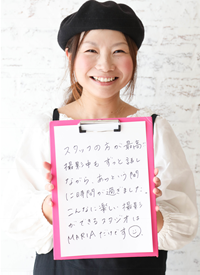 スタッフの方が最高
撮影中も ずっと話し
ながら、あっという間
に2時間が過ぎました。
こんなに楽しい撮影
ができるスタジオは
MARIAだけです